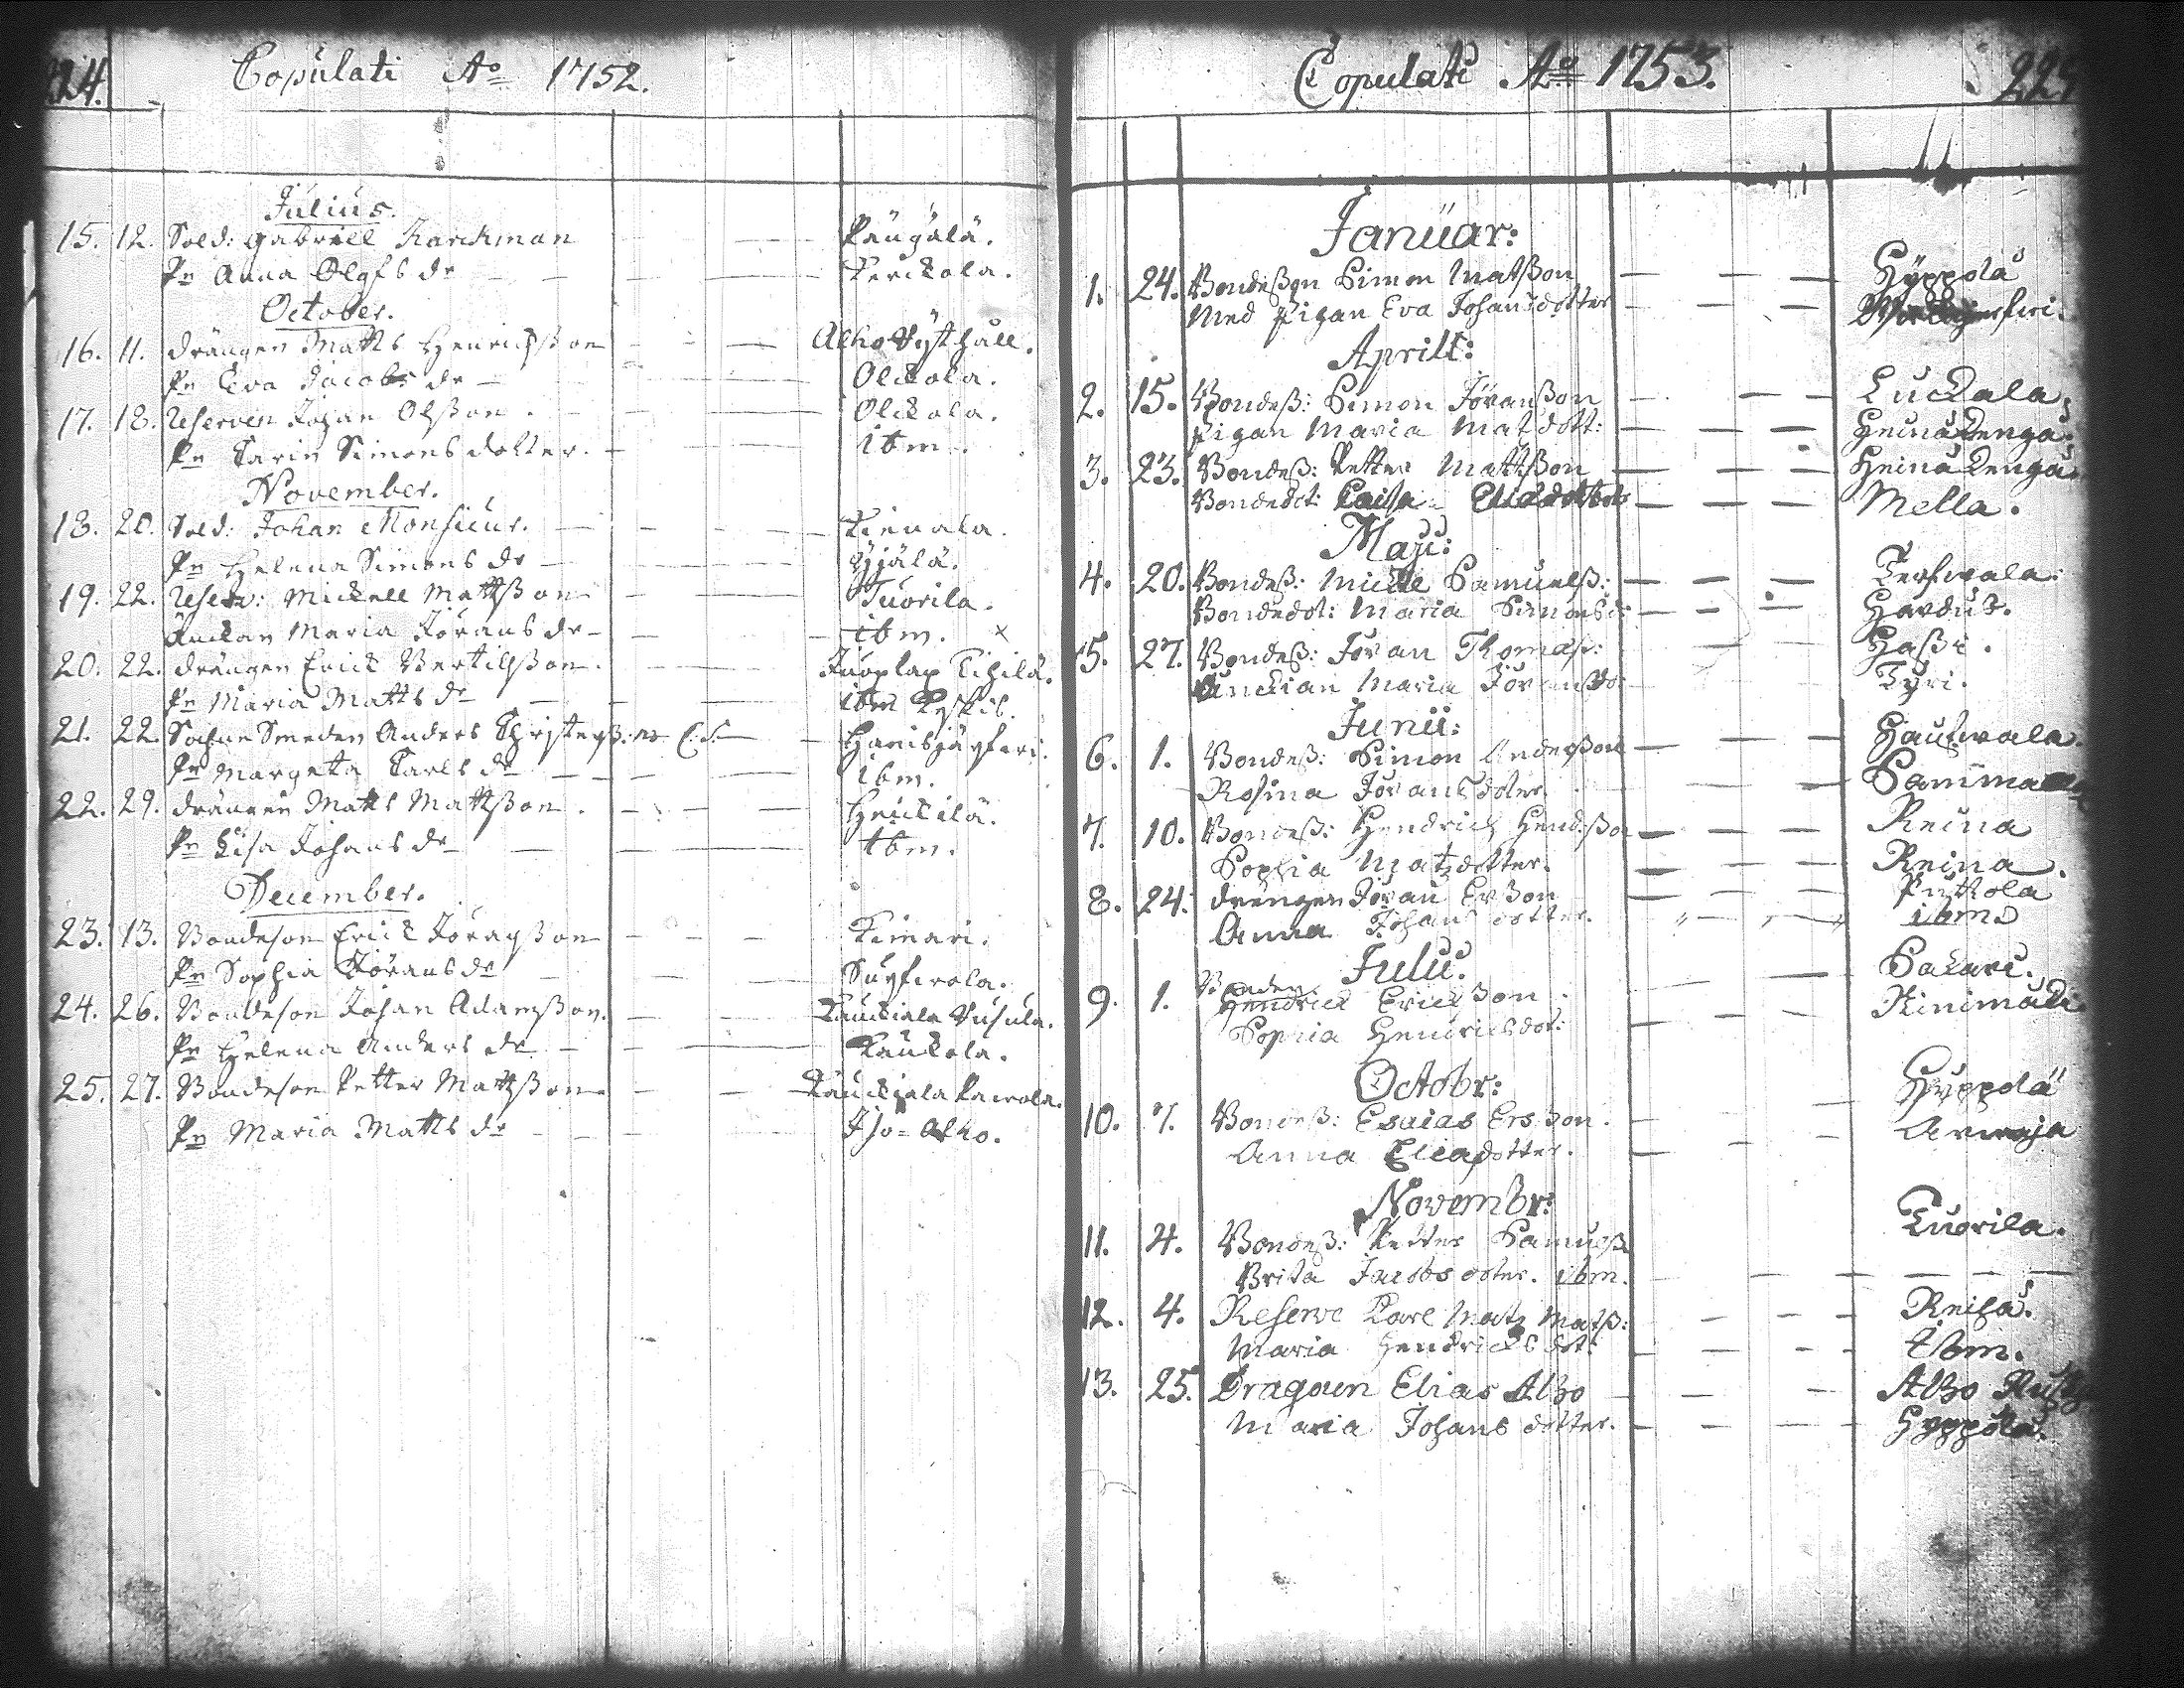 224.
Copulati Ao 1752.
Julius.
15. 12. Sold: Gabriell Karckman — — Päugälä.
Pn Anna Olofs dr — — Kerckola.
October.
16. 11. drängen Matts Henrichsson — — Alho Rysthåll.
Pn Eva Jacobs dr — — Olckola.
17. 18. Reserven Johan Olsson. — — Olckola.
Pn Carin Simons dotter. — ibm.
November.
18. 20. Sold: Johan Monsieur. — — Kienala.
Pn Helena Simons dr — — Yjälä.
19. 22. Reserv: Mickell Mattsson — — Tuorila.
Änckan Maria Jörans dr — — ibm. x
20. 22. drängen Erick Bertillsson. — —
Pn Maria Matts dr — — ibm
21. 22. Sochne Smeden Anders — —
Pn Margeta Carls dr — — ibm.
22. 29. drängen Matts Mattsson. — — Heickilä.
Pn Lisa Johans dr — — ibm.
December.
23. 13. Bondeson Erick Göransson — — Kimari.
Pn Sophia Görans dr —
24. 26. Bondeson Johan Adamsson. — — Kauckiala
Pn Helena Anders dr — — Kaukola.
25. 27. Bondeson Petter Mattsson — — Kauckiala
Pn Maria Matts dr — — Iso-Alho.
Copulati Ao 1753.
Januar:
1. 24. Bondesson Simon Matsson — — Hyppölä
Med Pigan Eva Johansdotter — —
Aprill:
2. 15. Bondess: Simon Jöransson — — Luckala
Pigan Maria Matsdott: — — Heinäkenga.
3. 23. Bondess: Petter Mattsson — — Heinäkenga.
Bondedot: Caisa — — Mella.
Maji:
4. 20. Bondess: Mickle Samuelss: — —
Bondedot: Maria Simonsd: — — Hardus.
5. 27. Bondess: Jöran Thomass: — — Hassi.
Änckian Maria Jöransdo: — — Kyri.
Junii:
6. 1. Bondess: Simon Andersson — —
Rosina Joransdoter. — —
7. 10. Bondess: Hendrich Hendsson — — Reina
Sophia Matzdotter. — — Reina.
8. 24. drängen Joran Ersson — —
Anna Johans dotter. — — ibm
Julii:
9. 1. Bonden
Hendrick Ericksson — — Pakari.
Sophia Henricksdot: — — Kinimäki
Octobr:
10. 7. Bondess: Esaias Ersson. — Hyppölä
Anna Eliasdotter. —
Novembr:
11. 4. Bondess: Petter Samuelss — Tuorila.
Brita Jacobs doter. ibm. — —
12. 4. Reserve Karl Matz Matss: — —
Maria Hendricks dot: — — ibm.
13. 25. Dragoun Elias Alho — — Alho
Maria Johans dotter. — — Hyppölä.